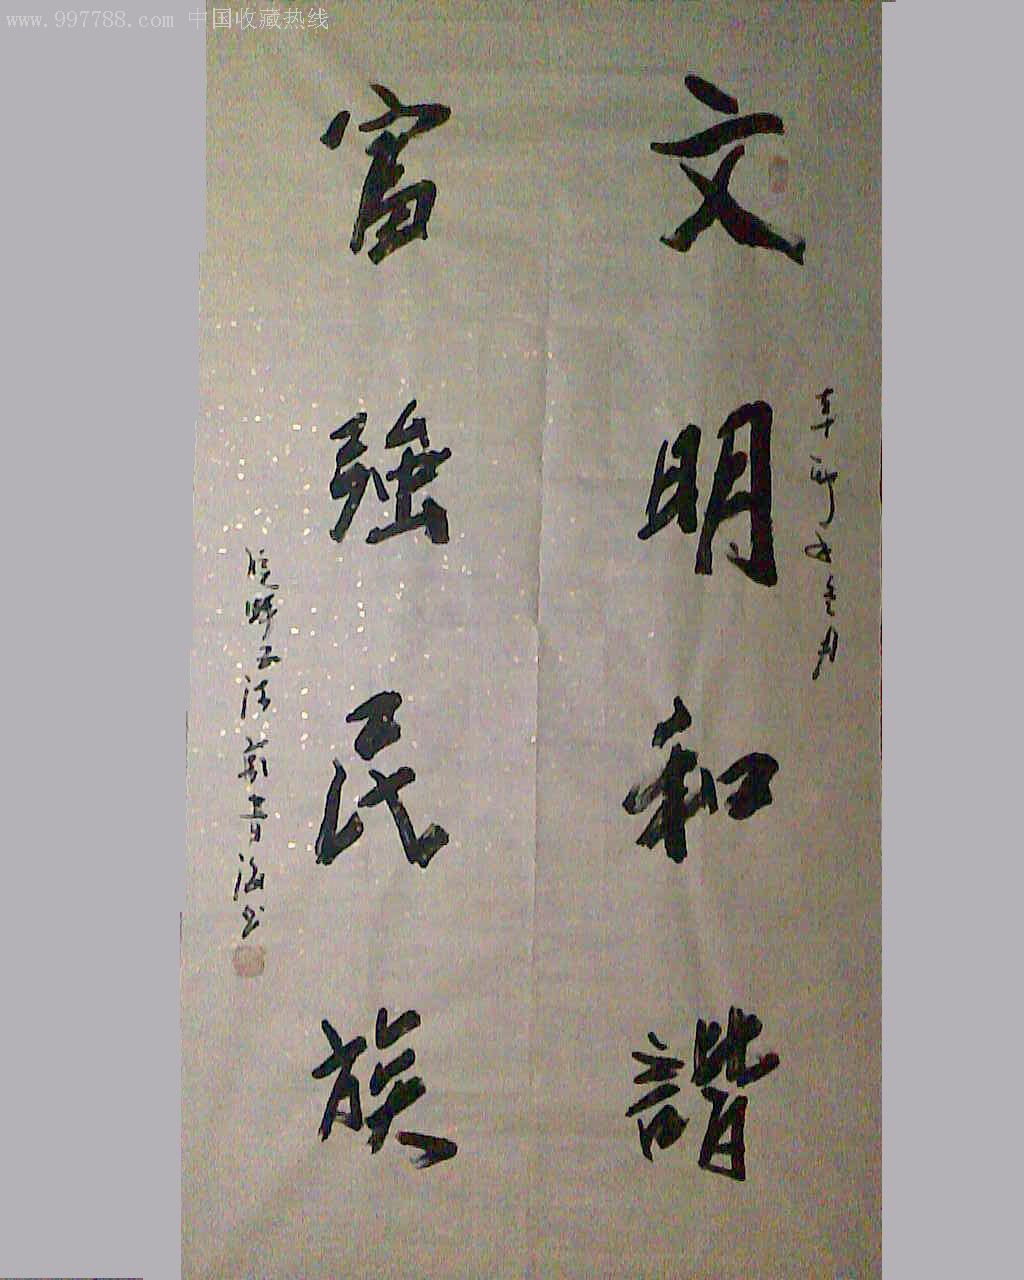 www.997788.com 中国收藏热线
文明和諧
富強民族
辛卯年冬月
青海书